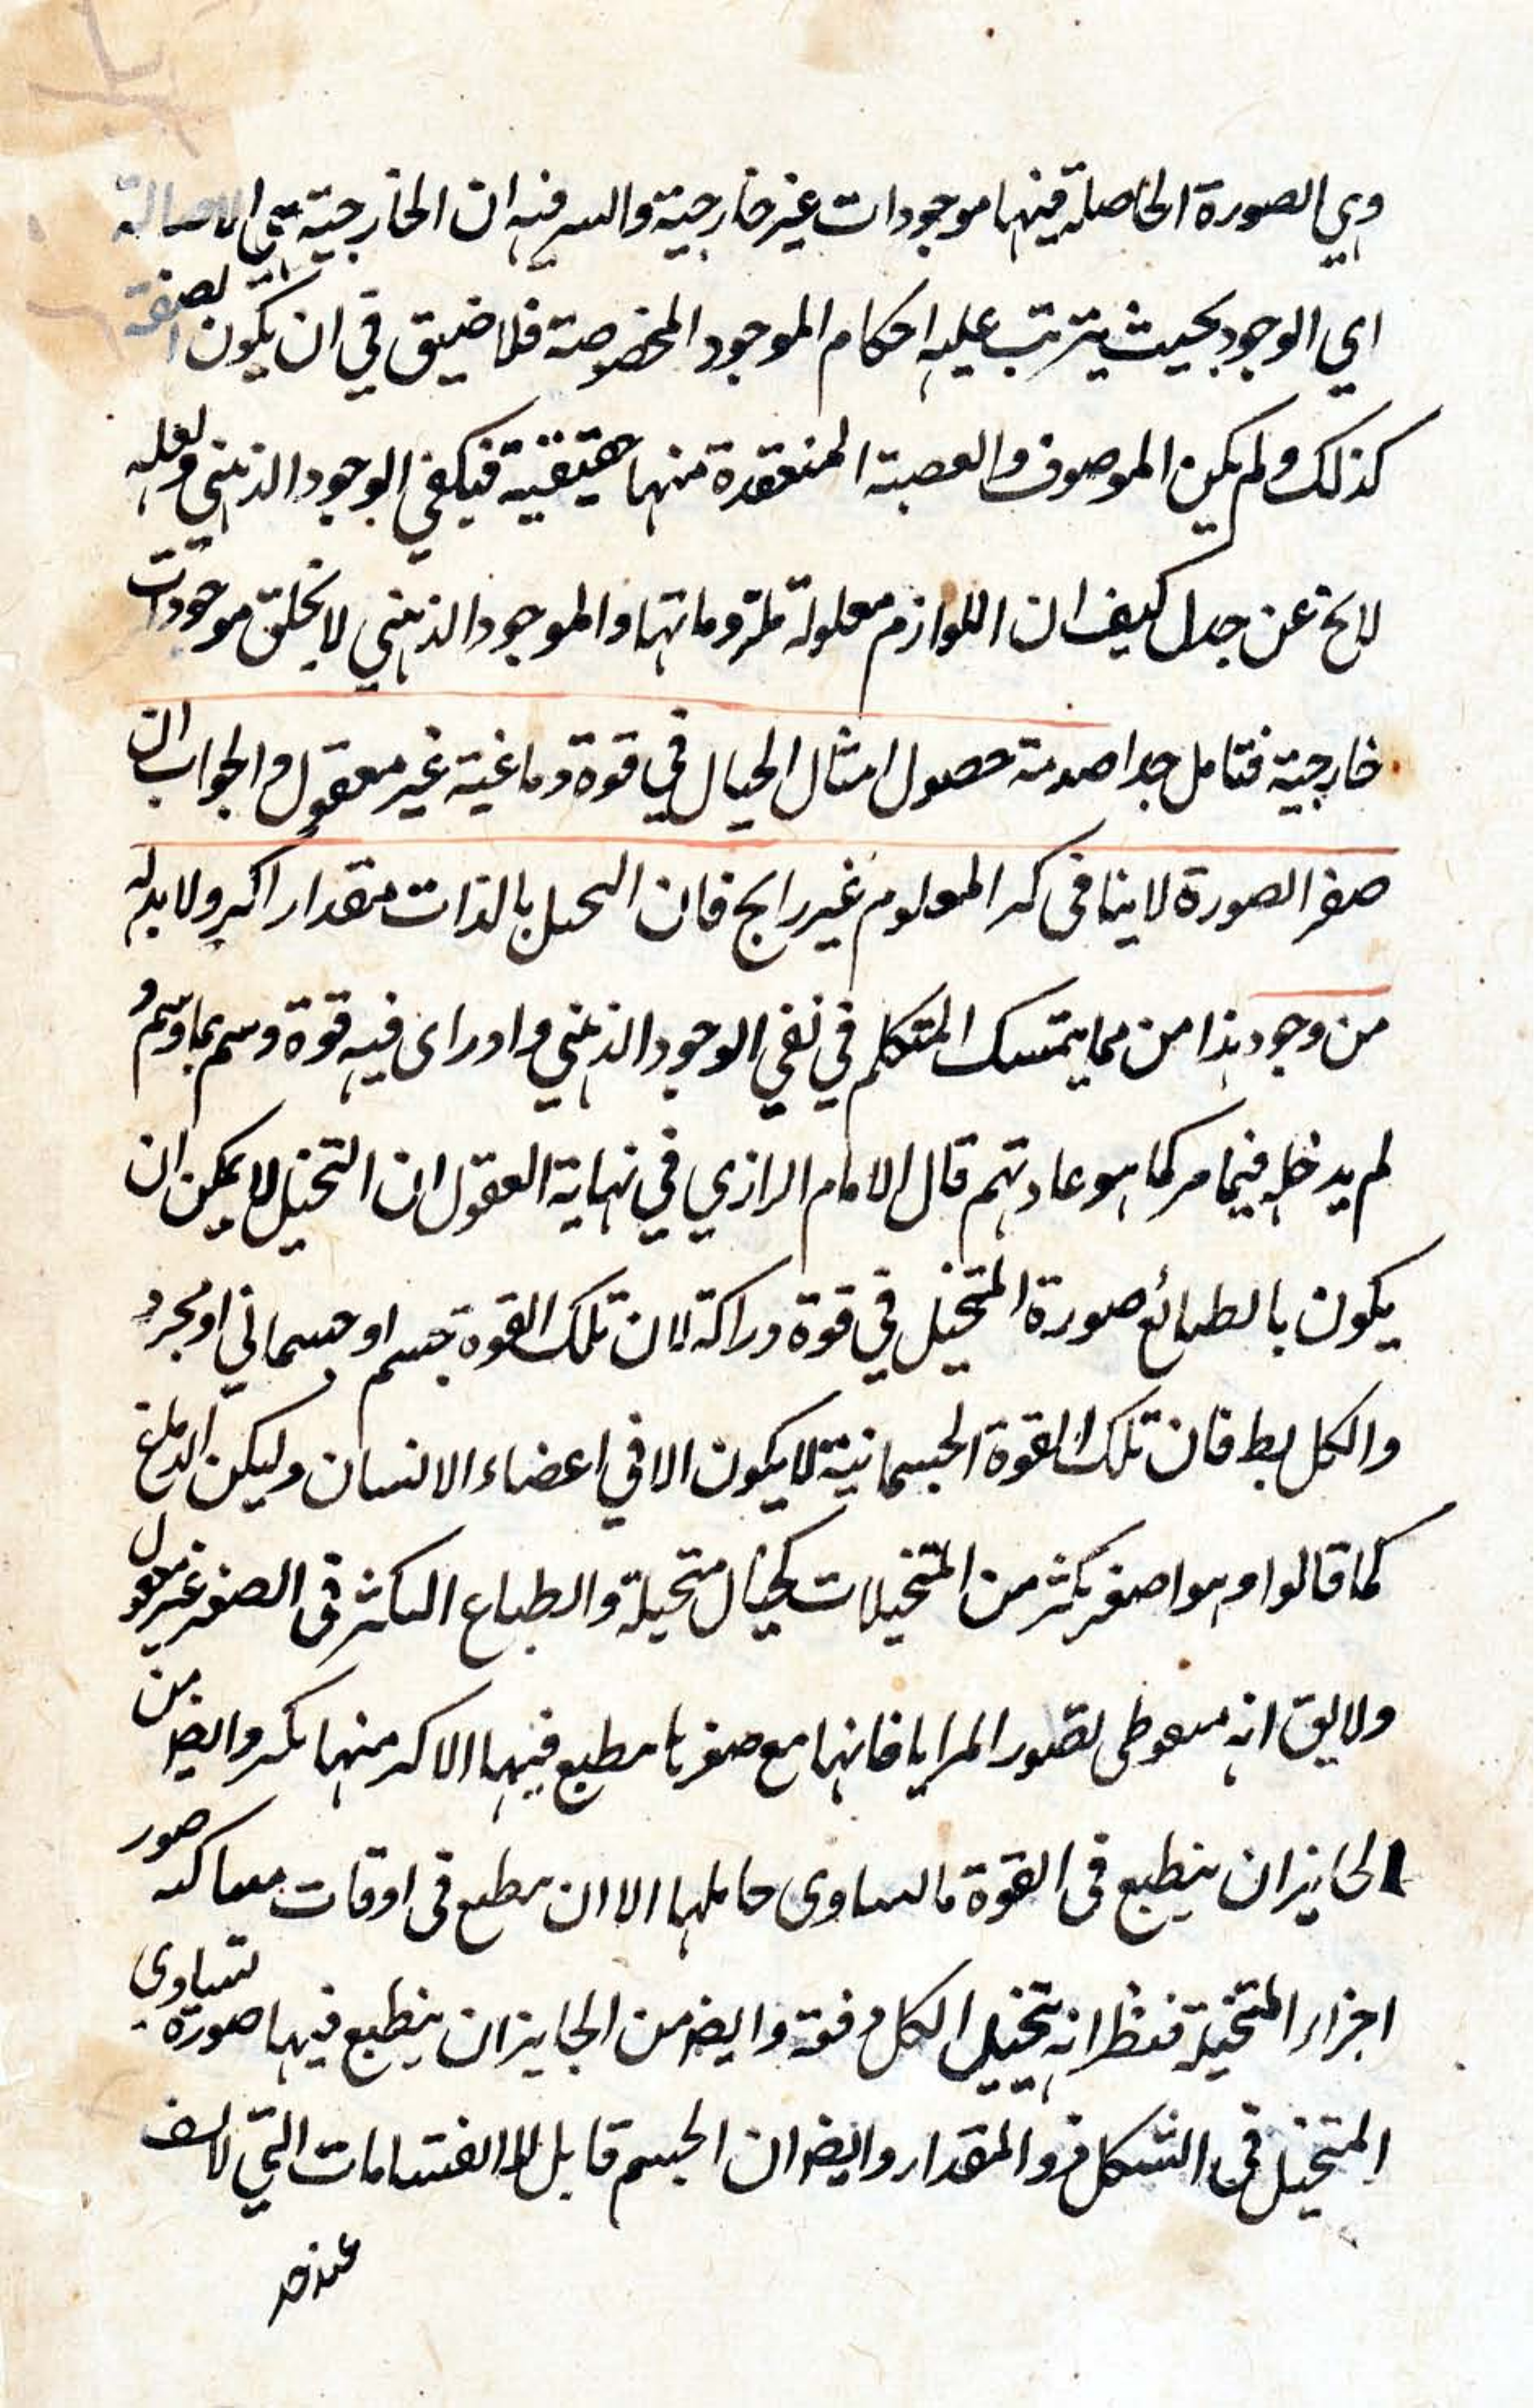 وهي الصورة الحاصلة فيها موجودات غير خارجية والسر فيه ان الخارجية هي الاصالة
اي الوجود بحيث يترتب عليه احكام الموجود المخصوصة فلا ضيق في ان يكون الصفة
كذلك ولم يكن الموصوف والعصبة المنعقدة منهما حقيقية فيكفي الوجود الذهني ولعله
لا يخ عن جدل كيف ان اللوازم معلولة لملزوماتها والموجود الذهني لا يخلق موجودات
خارجية فتامل جدا صدمة حصول امثال الجبال في قوة دماغية غير معقول والجواب ان
صغر الصورة لا ينافى كبر المعلوم غير رابج فان المتخيل بالذات مقدار اكبر ولا بد له
من وجود هذا من مما يتمسك المتكلم في نفي الوجود الذهني واورد اى فيه قوة وسم بما وسم و
لم يدخله فيما مر كما هو عادتهم قال الامام الرازي في نهاية العقول ان التخيل لا يمكن ان
يكون بانطباع صورة المتخيل في قوة دراكة لان تلك القوة جسم او جسماني او مجرد
والكل بط فان تلك القوة الجسمانية لا يكون الا في اعضاء الانسان وليكن الدماغ
كما قالوا وهو اصغر بكثر من المتخيلات كجبال متخيلة وانطباع الكثر فى الصغر غير معقول
ولا يق انه منقوض بصور المرايا فانها مع صغرها ينطبع فيها الاكبر منها بكثر وايضا من
الجايز ان ينطبع فى القوة ما يساوى حاملها الا ان ينطبع فى اوقات متعاكبه صور
اجزاء المتخيلة فنظن انه يتخيل الكل دفعة وايضا من الجايز ان ينطبع فيها صورة تساوي
المتخيل في الشكل دون المقدار وايضا ان الجسم قابل للانقسامات التي لا تقف
عند حد